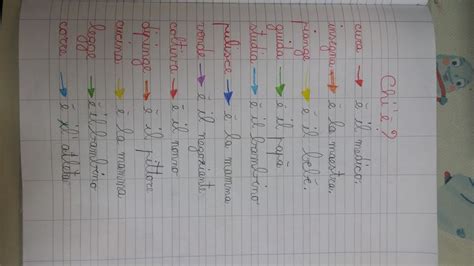 Chi è?
cura → è il medico.
insegna → è la maestra.
piange → è il bebè.
guida → è il papà
studia → è il bambino
pulisce → è la mamma
vende → è il negoziante
coltiva → è il nonno
dipinge → è il pittore
cucina → è la mamma
legge → è il bambino
corre → è l'atleta